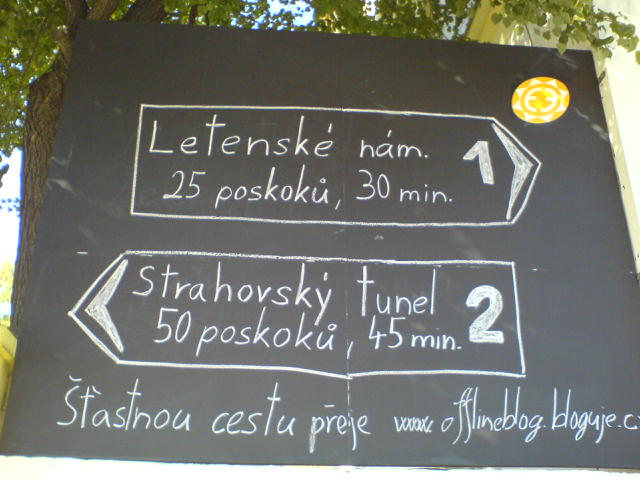 Letenské nám. 1
25 poskoků, 30 min.
Strahovský tunel 2
50 poskoků, 45 min.
Šťastnou cestu přeje www.offlineblog.bloguje.c